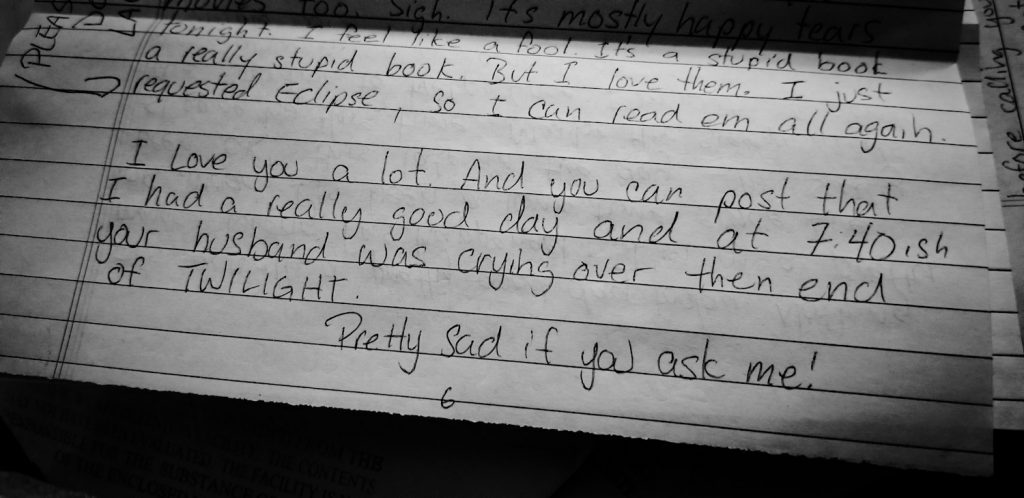 movies too. Sigh. Its mostly happy tears
tonight. I feel like a fool. It's a stupid book
a really stupid book. But I love them. I just
requested Eclipse, so I can read em all again.
I Love you a lot. And you can post that
I had a really good day and at 7:40.ish
your husband was crying over then end
of TWILIGHT.
Pretty Sad if you ask me!
6
before calling
FROM THE
EVALUATED. THE FACILITY IS
FOR THE SUBSTANCE
OF THE ENCLOSED
THE CONTENTS